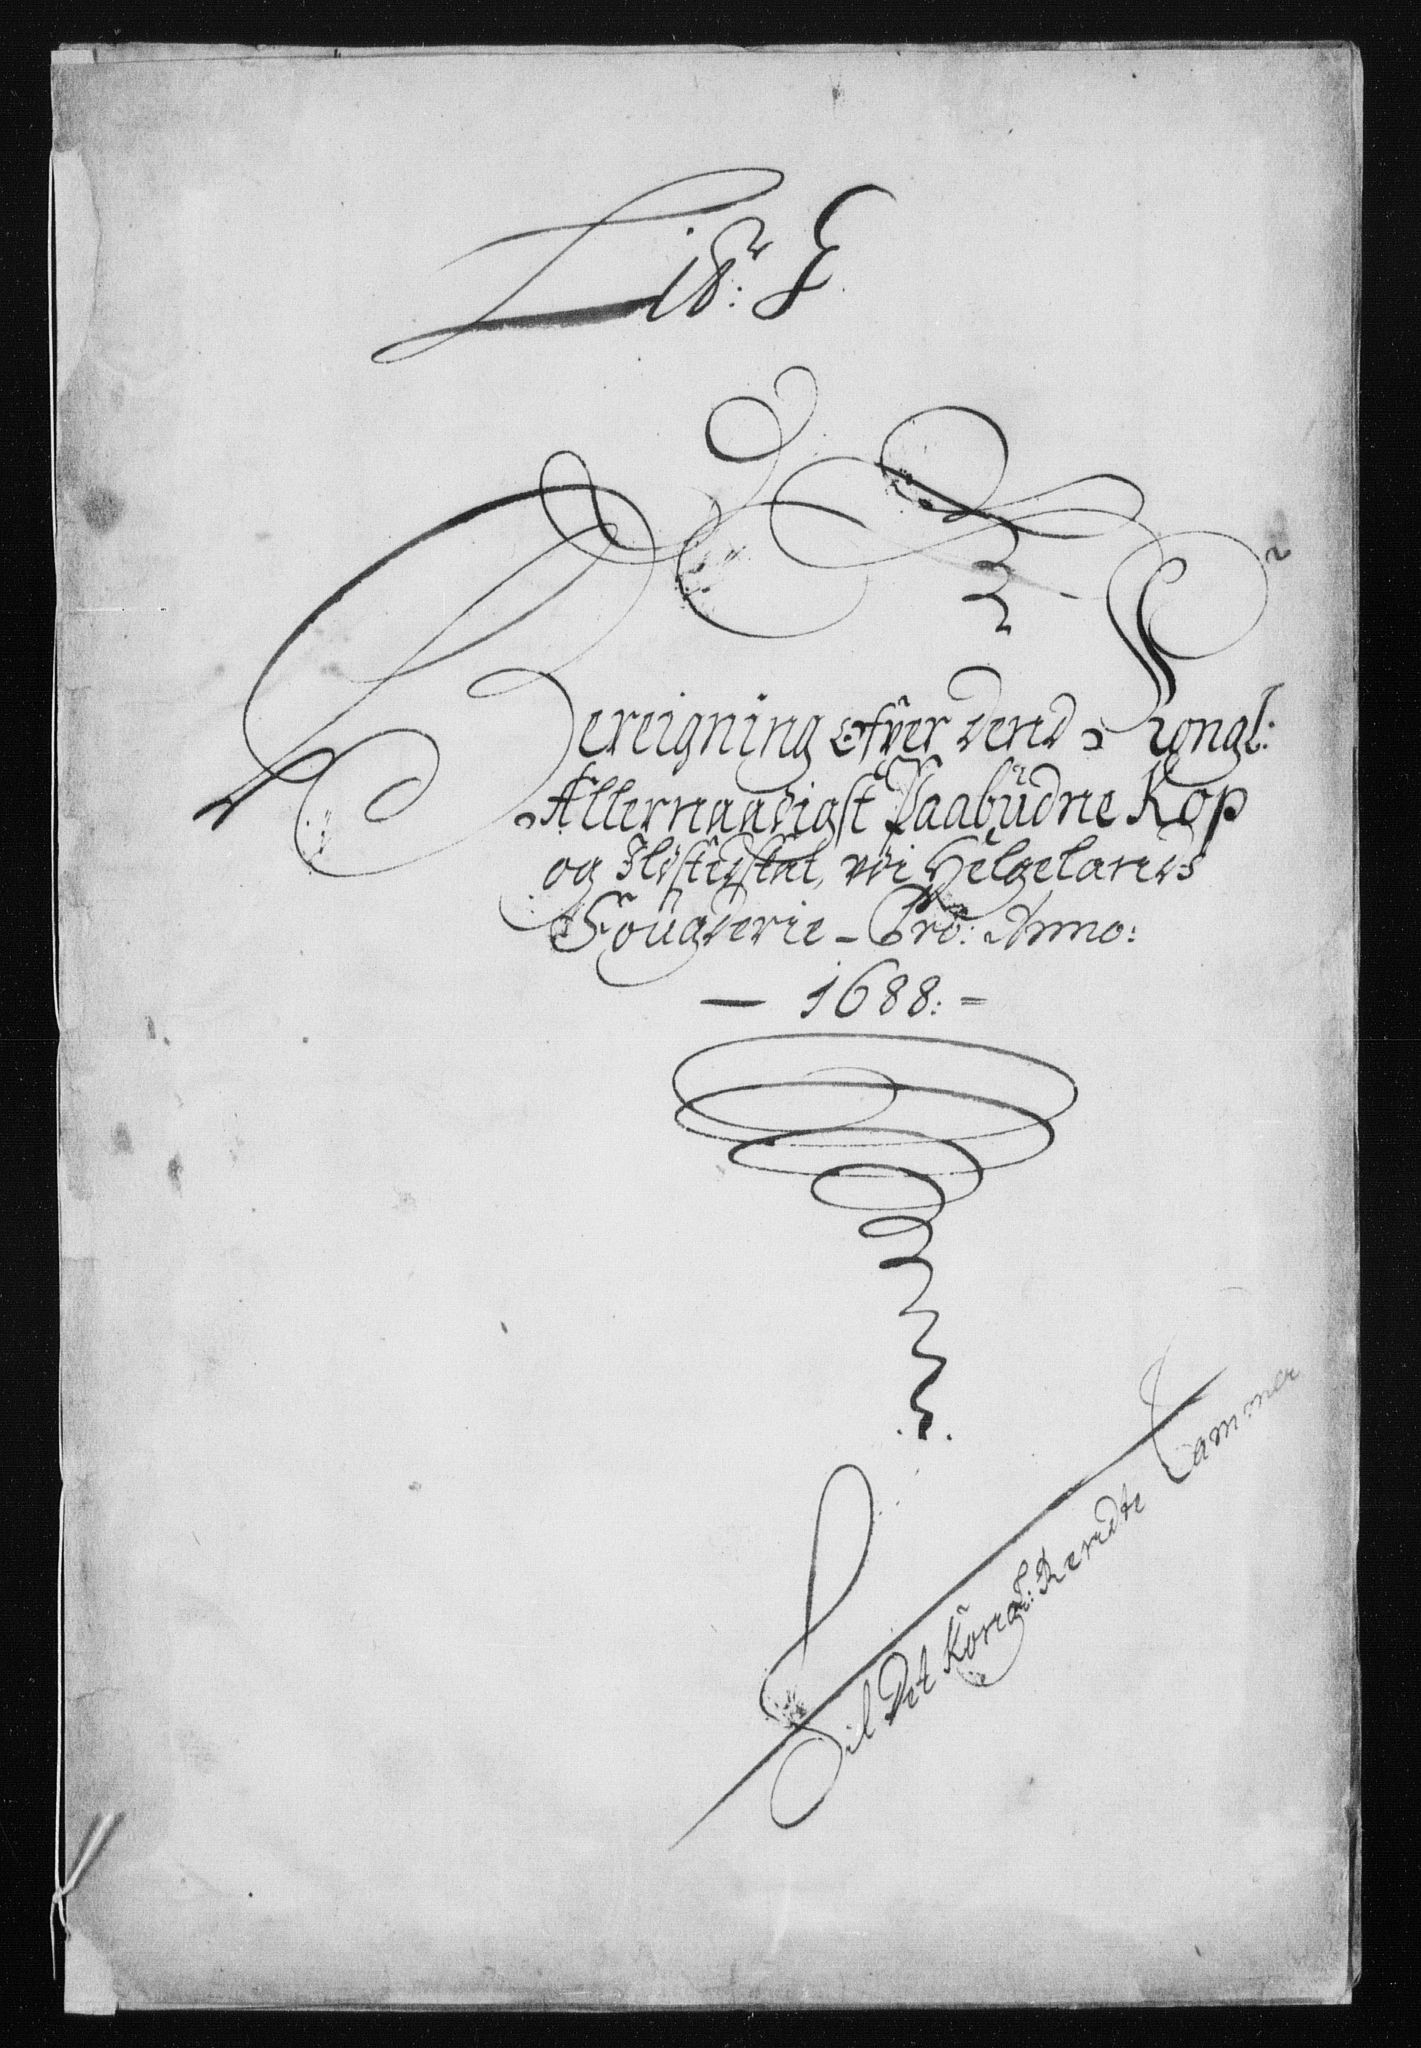 Litr: E.
Bereigning ofver dend Kongl:
Allernaadigst Paabudne Kop
og Ildstedskat, wdi Helgelands
Fougderie - Pro: Anno:
— 1688: =
Til Det Kongl: Rendte Cammer